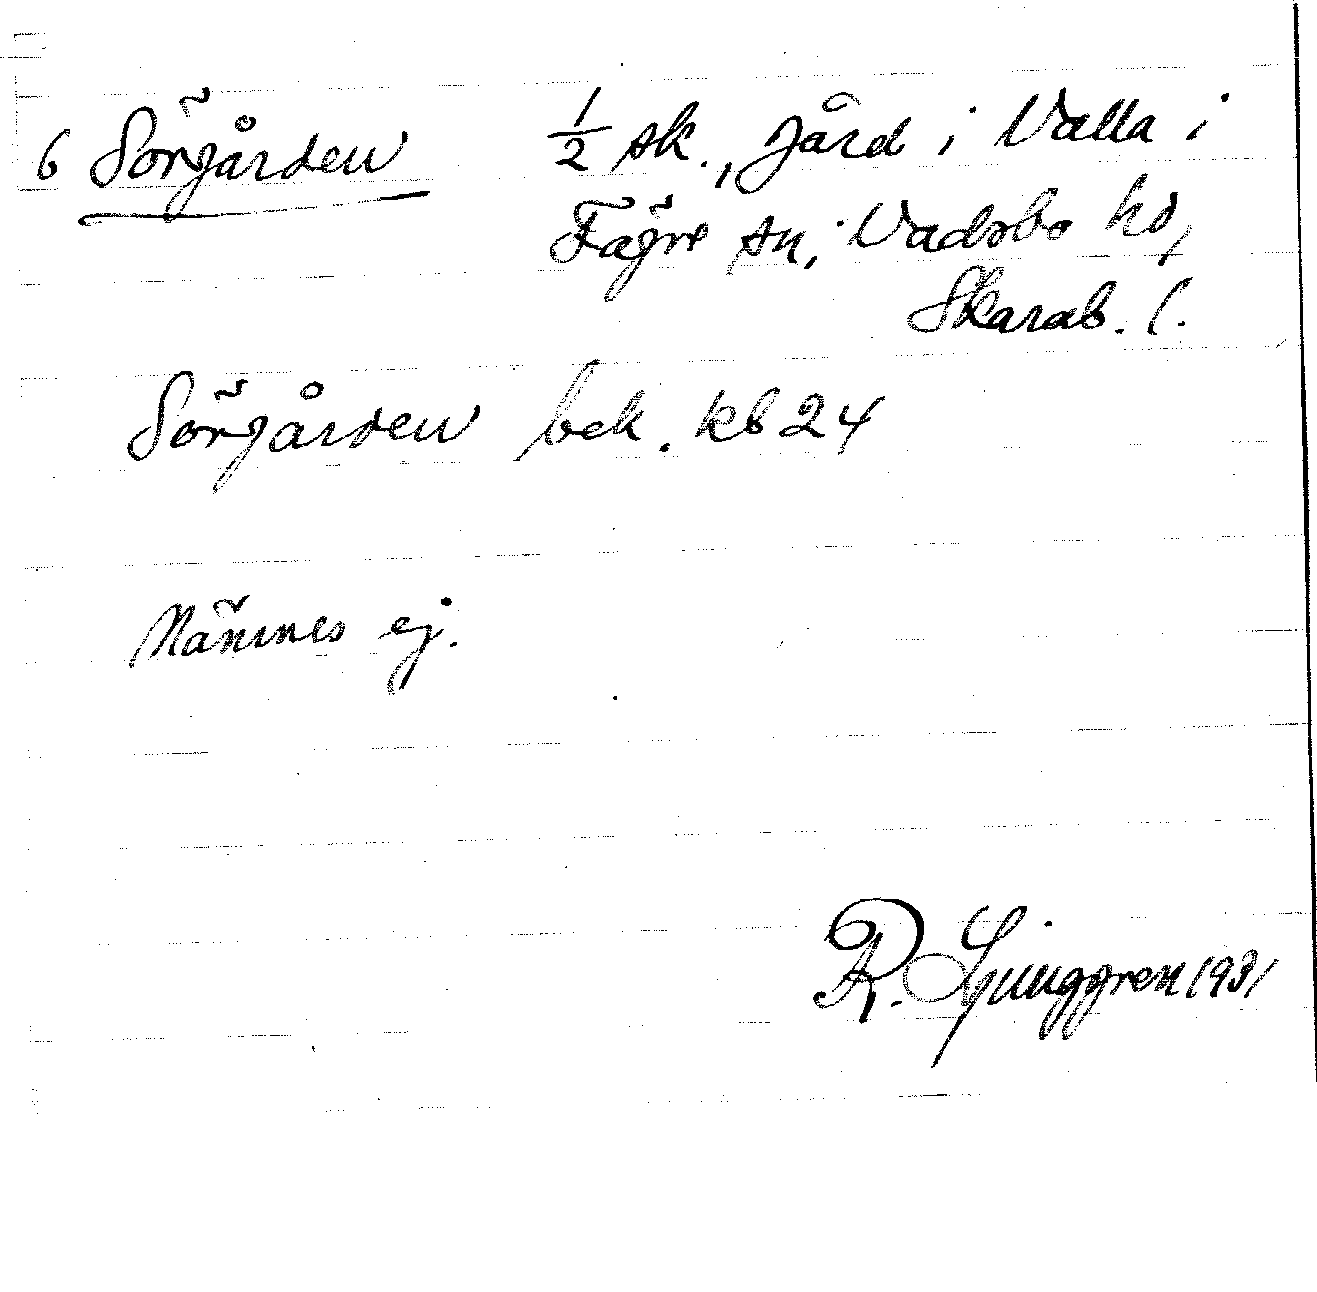 6 Sörgården ½ sk., gård i Valla i
Fägre sn, Vadsbo hd,
Skarab. l.
Sörgården bek. kb 24
Nämnes ej.
R. Ljunggren 1931